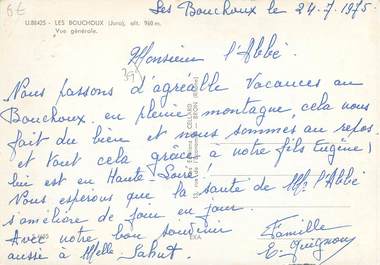 6€
U.88425 - LES BOUCHOUX (Jura), alt. 960 m.
Vue générale.
Les Bouchoux le 24-7-1975
Monsieur l'Abbé
39
Nous passons d'agréable Vacances au
Bouchoux en pleine montagne, cela nous
fait du bien et nous sommes au repos
et tout cela grâce à notre fils Eugène,
lui est en Haute Loire.
Nous espérons que la santé de Mr l'Abbé
s'améliore de jour en jour.
Avec notre bon souvenir
aussi à Melle Sahut.
Famille
E. Guignon
CELLARD
BRON
EXA